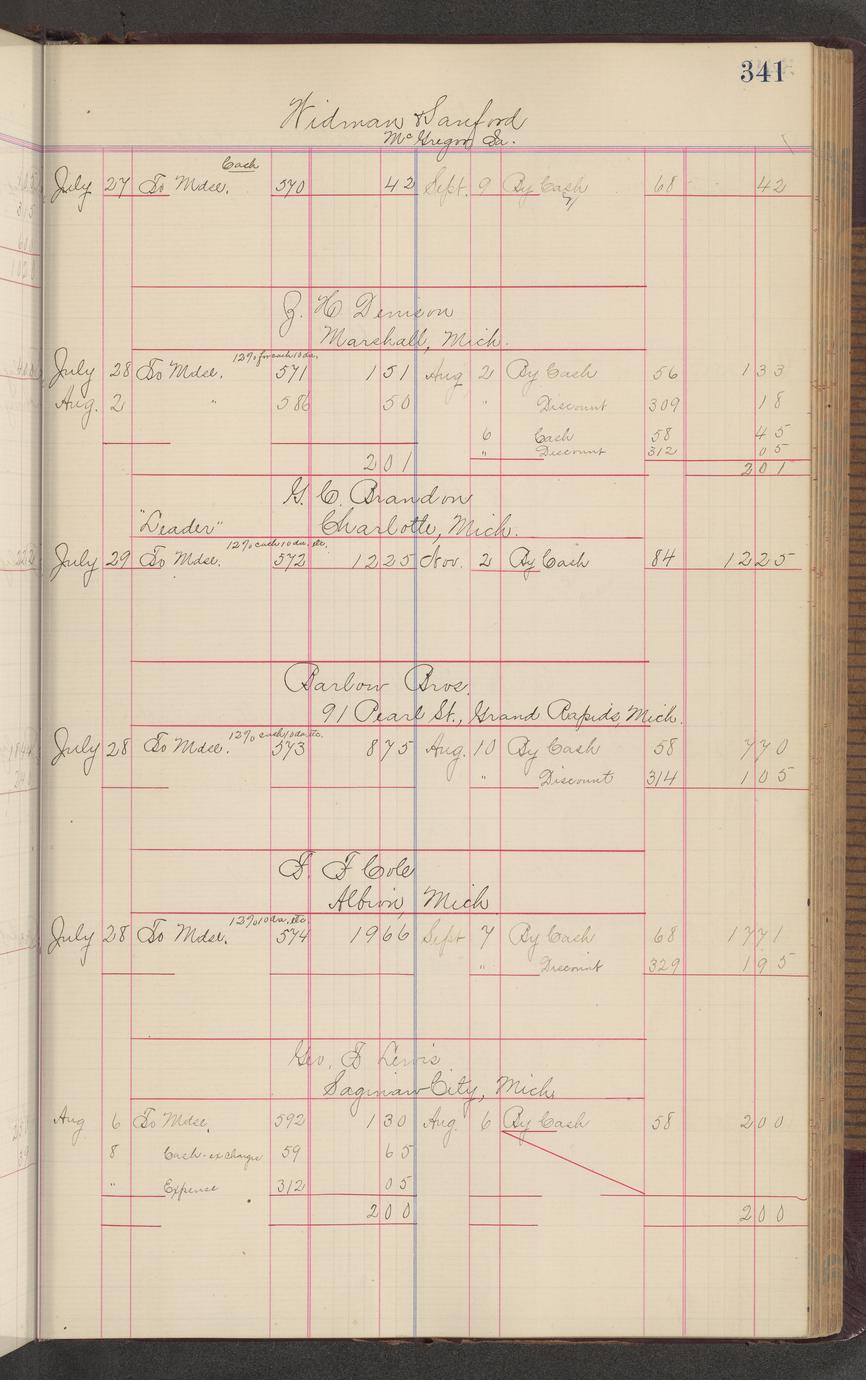 341
Widman & Sanford
McGregor, Ia.
Cash
July 27 To Mdse. 570 42 Sept. 9 By Cash 68 42
H. Denison
Marshall, Mich.
12% for cash 10 da.
July 28 To Mdse. 571 151 Aug 2 By Cash 56 133
Aug. 2 " 586 50 " Discount 309 18
6 Cash 58 45
" Discount 312 05
201 201
G. C. Brandon
"Leader" Charlotte, Mich.
12% cash 10 da. etc.
July 29 To Mdse. 572 1225 Nov. 2 By Cash 84 1225
Barlow Bros.
91 Pearl St., Grand Rapids, Mich.
12% cash 10 da. etc.
July 28 To Mdse. 573 875 Aug. 10 By Cash 58 770
" Discount 314 105
F. F Cole
Albion, Mich
12% 10 da. etc.
July 28 To Mdse. 574 1966 Sept 7 By Cash 68 1771
" Discount 329 195
Geo. F Lewis
Saginaw City, Mich.
Aug 6 To Mdse. 592 130 Aug. 6 By Cash 58 200
8 Cash-exchange 59 65
" Expense 312 05
200 200